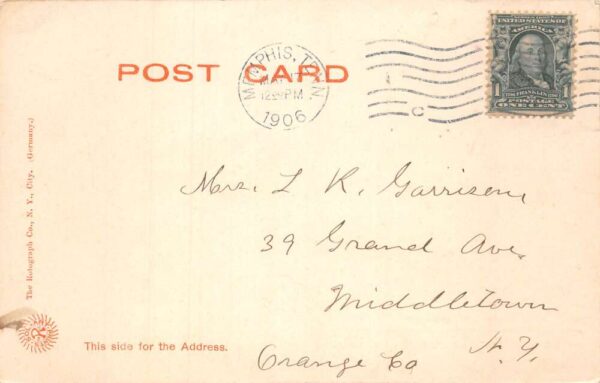 POST CARD
MEMPHIS, TENN
12 PM
1906
UNITED STATES OF AMERICA
1 FRANKLIN 1
POSTAGE
ONE CENT
C
Mrs. L R. Garrison,
39 Grand Ave,
Middletown
Orange Co N.Y.
This side for the Address.
The Rotograph Co., N. Y., City. (Germany.)